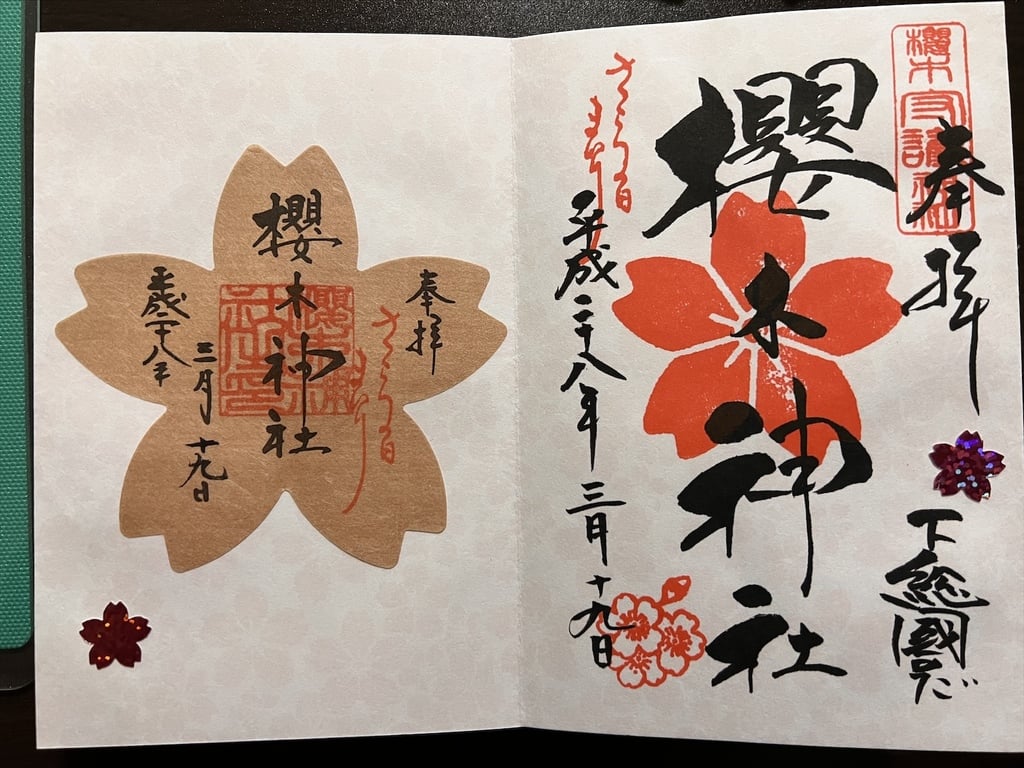 奉拝
下総國のだ
櫻木神社
さくらの日
まいり
平成二十八年 三月 十九日
奉拝
さくらの日
まいり
櫻木神社
三月 十九日
平成二十八年